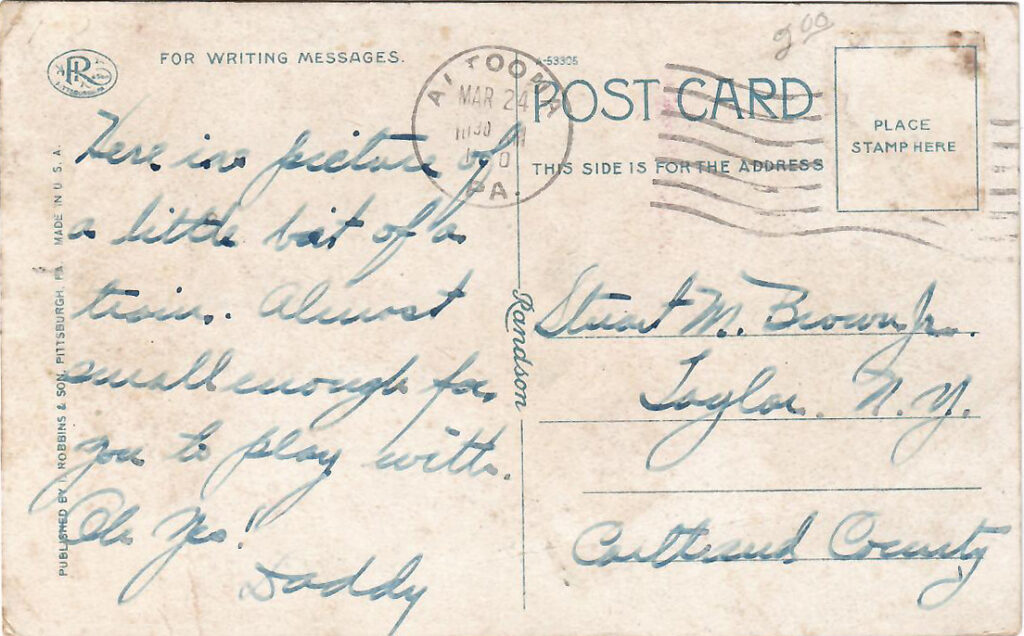 2.00
FOR WRITING MESSAGES.
PR
PITTSBURGH, PA.
ALTOONA
MAR 24
PA.
A-53305
POST CARD
THIS SIDE IS FOR THE ADDRESS
PLACE
STAMP HERE
Here is a picture of
a little bit of a
train. Almost
small enough for
you to play with.
Oh Yes!
Daddy
Stuart M. Brown Jr.
Taylor. N. Y.
Cortland County
Randson
PUBLISHED BY I. ROBBINS & SON, PITTSBURGH, PA. MADE IN U. S. A.